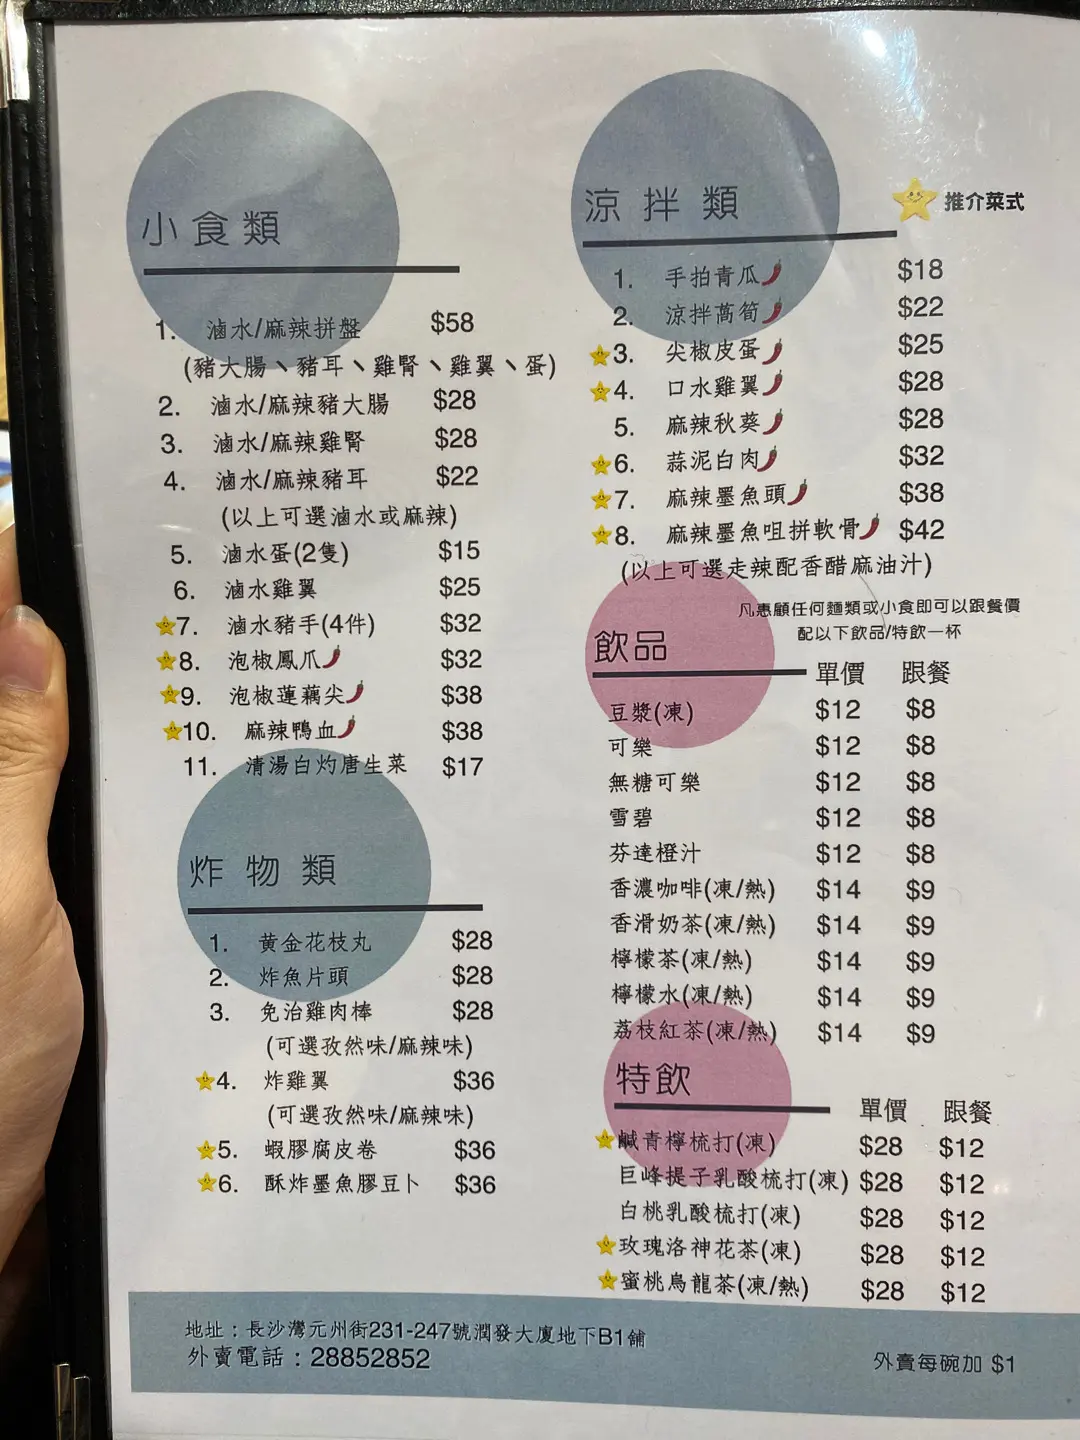 小食類
1. 滷水/麻辣拼盤 $58
(豬大腸、豬耳、雞腎、雞翼、蛋)
2. 滷水/麻辣豬大腸 $28
3. 滷水/麻辣雞腎 $28
4. 滷水/麻辣豬耳 $22
(以上可選滷水或麻辣)
5. 滷水蛋(2隻) $15
6. 滷水雞翼 $25
7. 滷水豬手(4件) $32
8. 泡椒鳳爪 $32
9. 泡椒蓮藕尖 $38
10. 麻辣鴨血 $38
11. 清湯白灼唐生菜 $17
炸物類
1. 黄金花枝丸 $28
2. 炸魚片頭 $28
3. 免治雞肉棒 $28
(可選孜然味/麻辣味)
4. 炸雞翼 $36
(可選孜然味/麻辣味)
5. 蝦膠腐皮卷 $36
6. 酥炸墨魚膠豆卜 $36
涼拌類
推介菜式
1. 手拍青瓜 $18
2. 涼拌萵筍 $22
3. 尖椒皮蛋 $25
4. 口水雞翼 $28
5. 麻辣秋葵 $28
6. 蒜泥白肉 $32
7. 麻辣墨魚頭 $38
8. 麻辣墨魚咀拼軟骨 $42
(以上可選走辣配香醋麻油汁)
凡惠顧任何麵類或小食即可以跟餐價
配以下飲品/特飲一杯
飲品 單價 跟餐
豆漿(凍) $12 $8
可樂 $12 $8
無糖可樂 $12 $8
雪碧 $12 $8
芬達橙汁 $12 $8
香濃咖啡(凍/熱) $14 $9
香滑奶茶(凍/熱) $14 $9
檸檬茶(凍/熱) $14 $9
檸檬水(凍/熱) $14 $9
荔枝紅茶(凍/熱) $14 $9
特飲 單價 跟餐
鹹青檸梳打(凍) $28 $12
巨峰提子乳酸梳打(凍) $28 $12
白桃乳酸梳打(凍) $28 $12
玫瑰洛神花茶(凍) $28 $12
蜜桃烏龍茶(凍/熱) $28 $12
地址：長沙灣元州街231-247號潤發大廈地下B1舖
外賣電話：28852852
外賣每碗加 $1